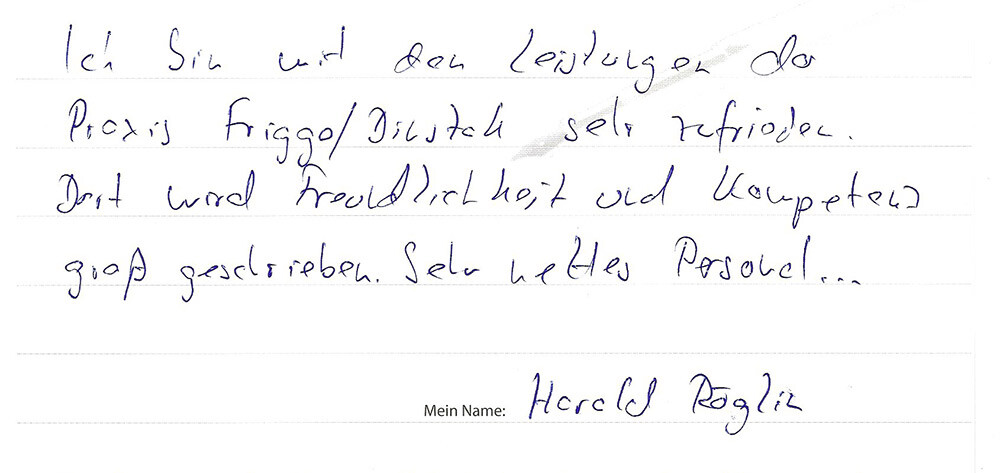 Ich bin mit den Leistungen der
Praxis Frigge/Dinstak sehr zufrieden.
Dort wird Freundlichkeit und Kompetenz
groß geschrieben. Sehr nettes Personal...
Mein Name: Harald Röglin